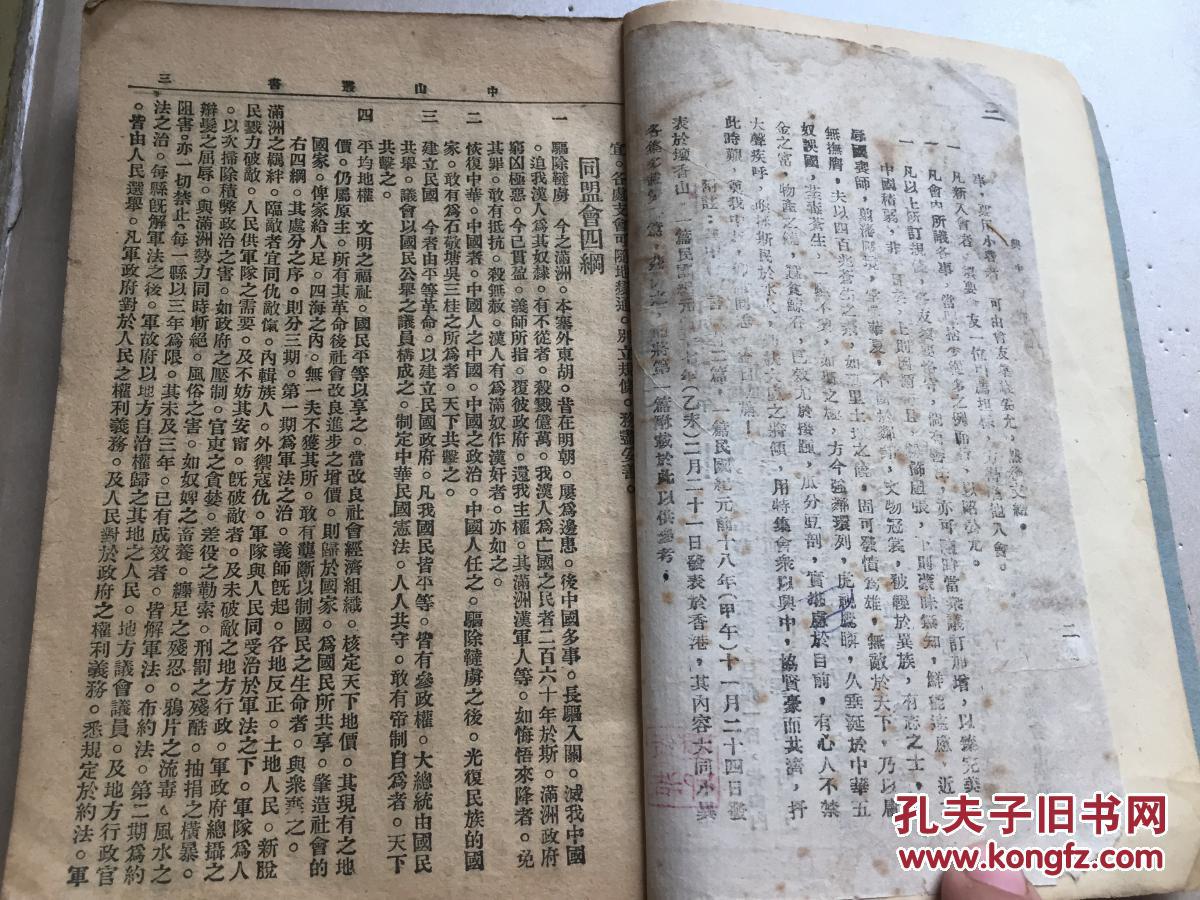 二
二
可由會友集議妥允,然後支給。
一 凡新入會者,須要會友一位引薦担保,方得准他入會。
一 凡會內所議各事,當照捨少從多之例而行,以昭公允。
一 凡以上所訂規條,各友須要恪守,倘有善法,亦可隨時當衆議訂加增,以臻完美
中國積弱,非一日矣!上則因循苟且,粉飾虛張,下則蒙昧無知,鮮能遠慮,近之
辱國喪師,翦藩壓境,堂堂華夏,不齒於鄰邦,文物冠裳,被輕於異族,有志之士,能
無撫膺,夫以四百兆蒼生之衆,數萬里土地之饒,固可發憤為雄,無敵於天下,乃以庸
奴誤國,荼毒蒼生,一蹶不興,如斯之極,方今強鄰環列,虎視鷹瞵,久垂涎於中華五
金之富,物產之饒,蠶食鯨吞,已效尤於接踵,瓜分豆剖,實堪慮於目前,有心人不禁
大聲疾呼,亟拯斯民於水火,切扶大廈之將傾,用特集會衆以興中,協賢豪而共濟,抒
此時艱,奠我中夏,仰諸同志,盍自勉旃!
附註:興中會宣言二篇,一篇民國紀元前十八年(甲午)十一月二十四日發
表於檀香山 一篇民國紀元前十七年(乙未)二月二十一日發表於香港,其內容大同小異
茲將第一篇附載於此以供參考,
中山叢書 三
宜。各處支會可隨地變通。別立規條。務臻妥善。
同盟會四綱
一 驅除韃虜 今之滿洲。本塞外東胡。昔在明朝。屢為邊患。後中國多事。長驅入關。滅我中國
。迫我漢人為其奴隸。有不從者。殺戮億萬。我漢人為亡國之民者二百六十年於斯。滿洲政府
窮凶極惡。今已貫盈。義師所指。覆彼政府。還我主權。其滿洲漢軍人等。如悔悟來降者。免
其罪。敢有抵抗。殺無赦。漢人有為滿奴作漢奸者。亦如之。
二 恢復中華。中國者。中國人之中國。中國之政治。中國人任之。驅除韃虜之後。光復民族的國
家。敢有為石敬塘吳三桂之所為者。天下共擊之。
三 建立民國 今者由平等革命。以建立民國政府。凡我國民皆平等。皆有參政權。大總統由國民
共舉。議會以國民公舉之議員構成之。制定中華民國憲法。人人共守。敢有帝制自為者。天下
共擊之。
四 平均地權 文明之福祉。國民平等以享之。當改良社會經濟組織。核定天下地價。其現有之地
價。仍屬原主。所有其革命後社會改良進步之增價。則歸於國家。為國民所共享。肇造社會的
國家。俾家給人足。四海之內。無一夫不獲其所。敢有壟斷以制國民之生命者。與衆棄之。
右四綱。其處分之序。則分三期。第一期為軍法之治。義師旣起。各地反正。土地人民。新脫
滿洲之羈絆。臨敵者宜同仇敵愾。內輯族人。外禦寇仇。軍隊與人民同受治於軍法之下。軍隊為人
民戮力破敵。人民供軍隊之需要。及不妨其安甯。旣破敵者。及未破敵之地方行政。軍政府總攝之
。以次掃除積弊政治之害。如政府之壓制。官吏之貪婪。差役之勒索。刑罰之殘酷。抽捐之橫暴。
辮髮之屈辱。與滿洲勢力同時斬絕。風俗之害。如奴婢之畜養。纏足之殘忍。鴉片之流毒。風水之
阻害。亦一切禁止。每一縣以三年為限。其未及三年。已有成效者。皆解軍法。布約法。第二期為約
法之治。每縣旣解軍法之後。軍政府以地方自治權歸之其地之人民。地方議會議員。及地方行政官
。皆由人民選舉。凡軍政府對於人民之權利義務。及人民對於政府之權利義務。悉規定於約法。軍
孔夫子旧书网
www.kongfz.com